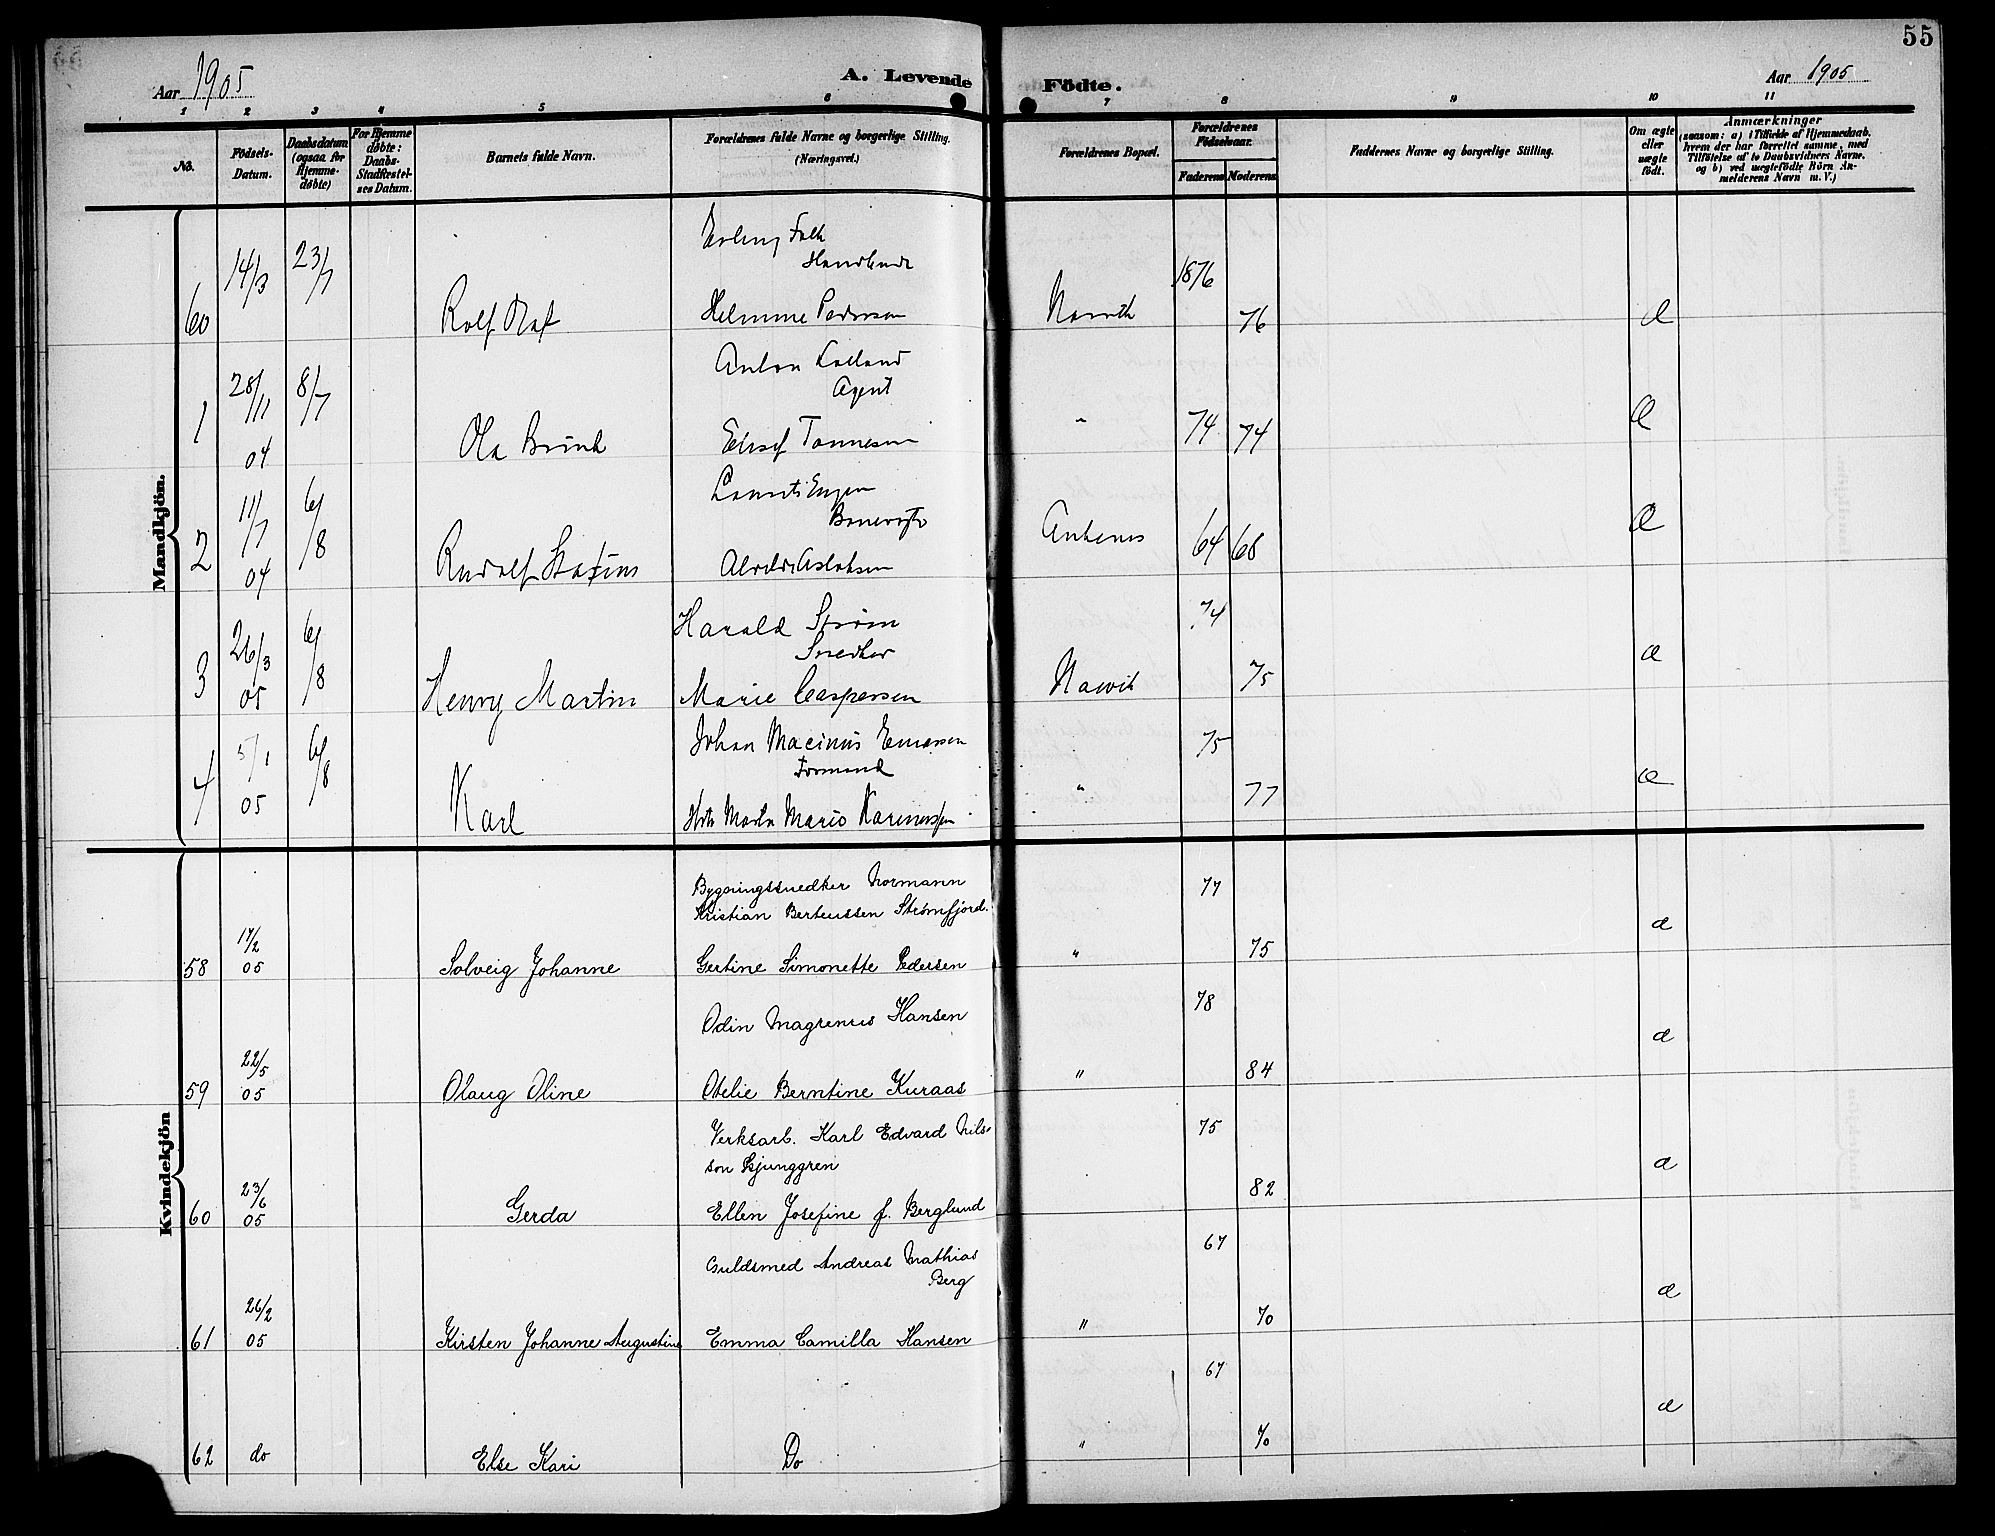 55
Aar 1905
A. Levende Födte.
Aar 1905
1 2 3 4 5 6 7 8 9 10 11
No.
Födsels-Datum.
Daabsdatum (ogsaa for Hjemme-døbte)
For Hjemme døbte: Daabs-Stadfæstelses Datum.
Barnets fulde Navn.
Forældrenes fulde Navne og borgerlige Stilling. (Næringsvei.)
Forældrenes Bopæl.
Forældrenes Födselsaar.
Faderens Moderens
Faddernes Navne og borgerlige Stilling.
Om ægte eller uægte födt.
Anmærkninger (saasom: a) i Tilfælde af Hjemmedaab, hvem der har forrettet samme, med Tilföielse af to Daabsvidners Navne, og b) ved uægtefödte Börn Anmelderens Navn m. V.)
Mandkjön.
60 14/3 23/7 Rolf Olaf
Falk
Narvik 1876 76 æ
1 28/11 04 8/7 Ola
Anton
Agent
" 74 74 æ
2 11/7 04 6/8 Rudolf
Ankenes 64 68 æ
3 26/3 05 6/8 Henry Martin
Harald Strøm
Snedker
Marie Caspersen
Narvik 74 75 æ
4 5/1 05 6/8 Karl
Johan
Formand
Marie
" 75 77 æ
Kvindekjön
58 17/2 05 Solveig Johanne
Bygningssnedker Normann
Kristian Berteussen Strømfjord.
Gertine Simonette Pedersen
" 77 75 æ
59 22/5 05 Olaug Oline
Odin Magrenius Hansen
Otelie Berntine Kuraas
" 78 84 æ
60 23/6 05 Gerda
Verksarb. Karl Edvard Nils-
son Ljunggren
Ellen Josefine f. Berglund
75 82 æ
61 26/2 05 Kirsten Johanne Augustine
Guldsmed Andreas Mathias
Berg
Emma Camilla Hansen
" 67 70 æ
62 do Else Kari
Do
" 67 70 æ